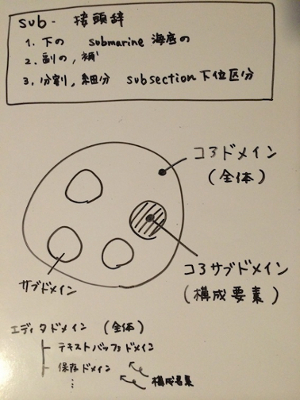 sub- 接頭辞
1. 下の submarine 海底の
2. 副の, 補
3. 分割, 細分 subsection 下位区分
コアドメイン
(全体)
コアサブドメイン
(構成要素)
サブドメイン
エディタドメイン (全体)
テキストバッファドメイン
保存ドメイン
構成要素
⋮